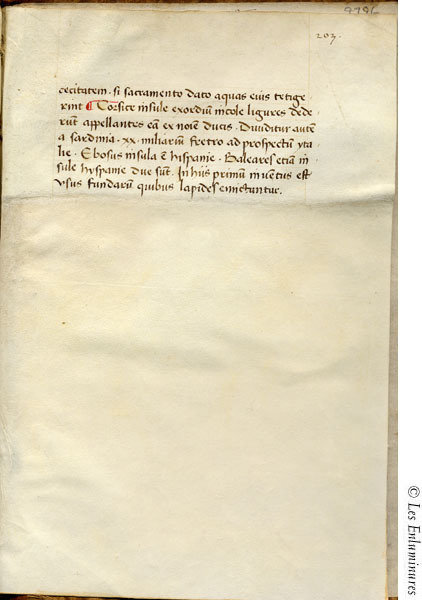 9786
203.
cecitatem. si sacramento dato aquas eius tetige
rint ¶ Corsice insule exordiū incole ligures dede
rūt appellantes eā ex noīe ducis. Diuiditur autē
a sardinia .xx. miliariū fretro ad prospectū yta
lie. Ebosus insula ē hispanie. Baleares etiā in
sule hyspanie due sūt. In hiis primum inuentus est
vsus fundarū quibus lapides emictuntur.
© Les Enluminures